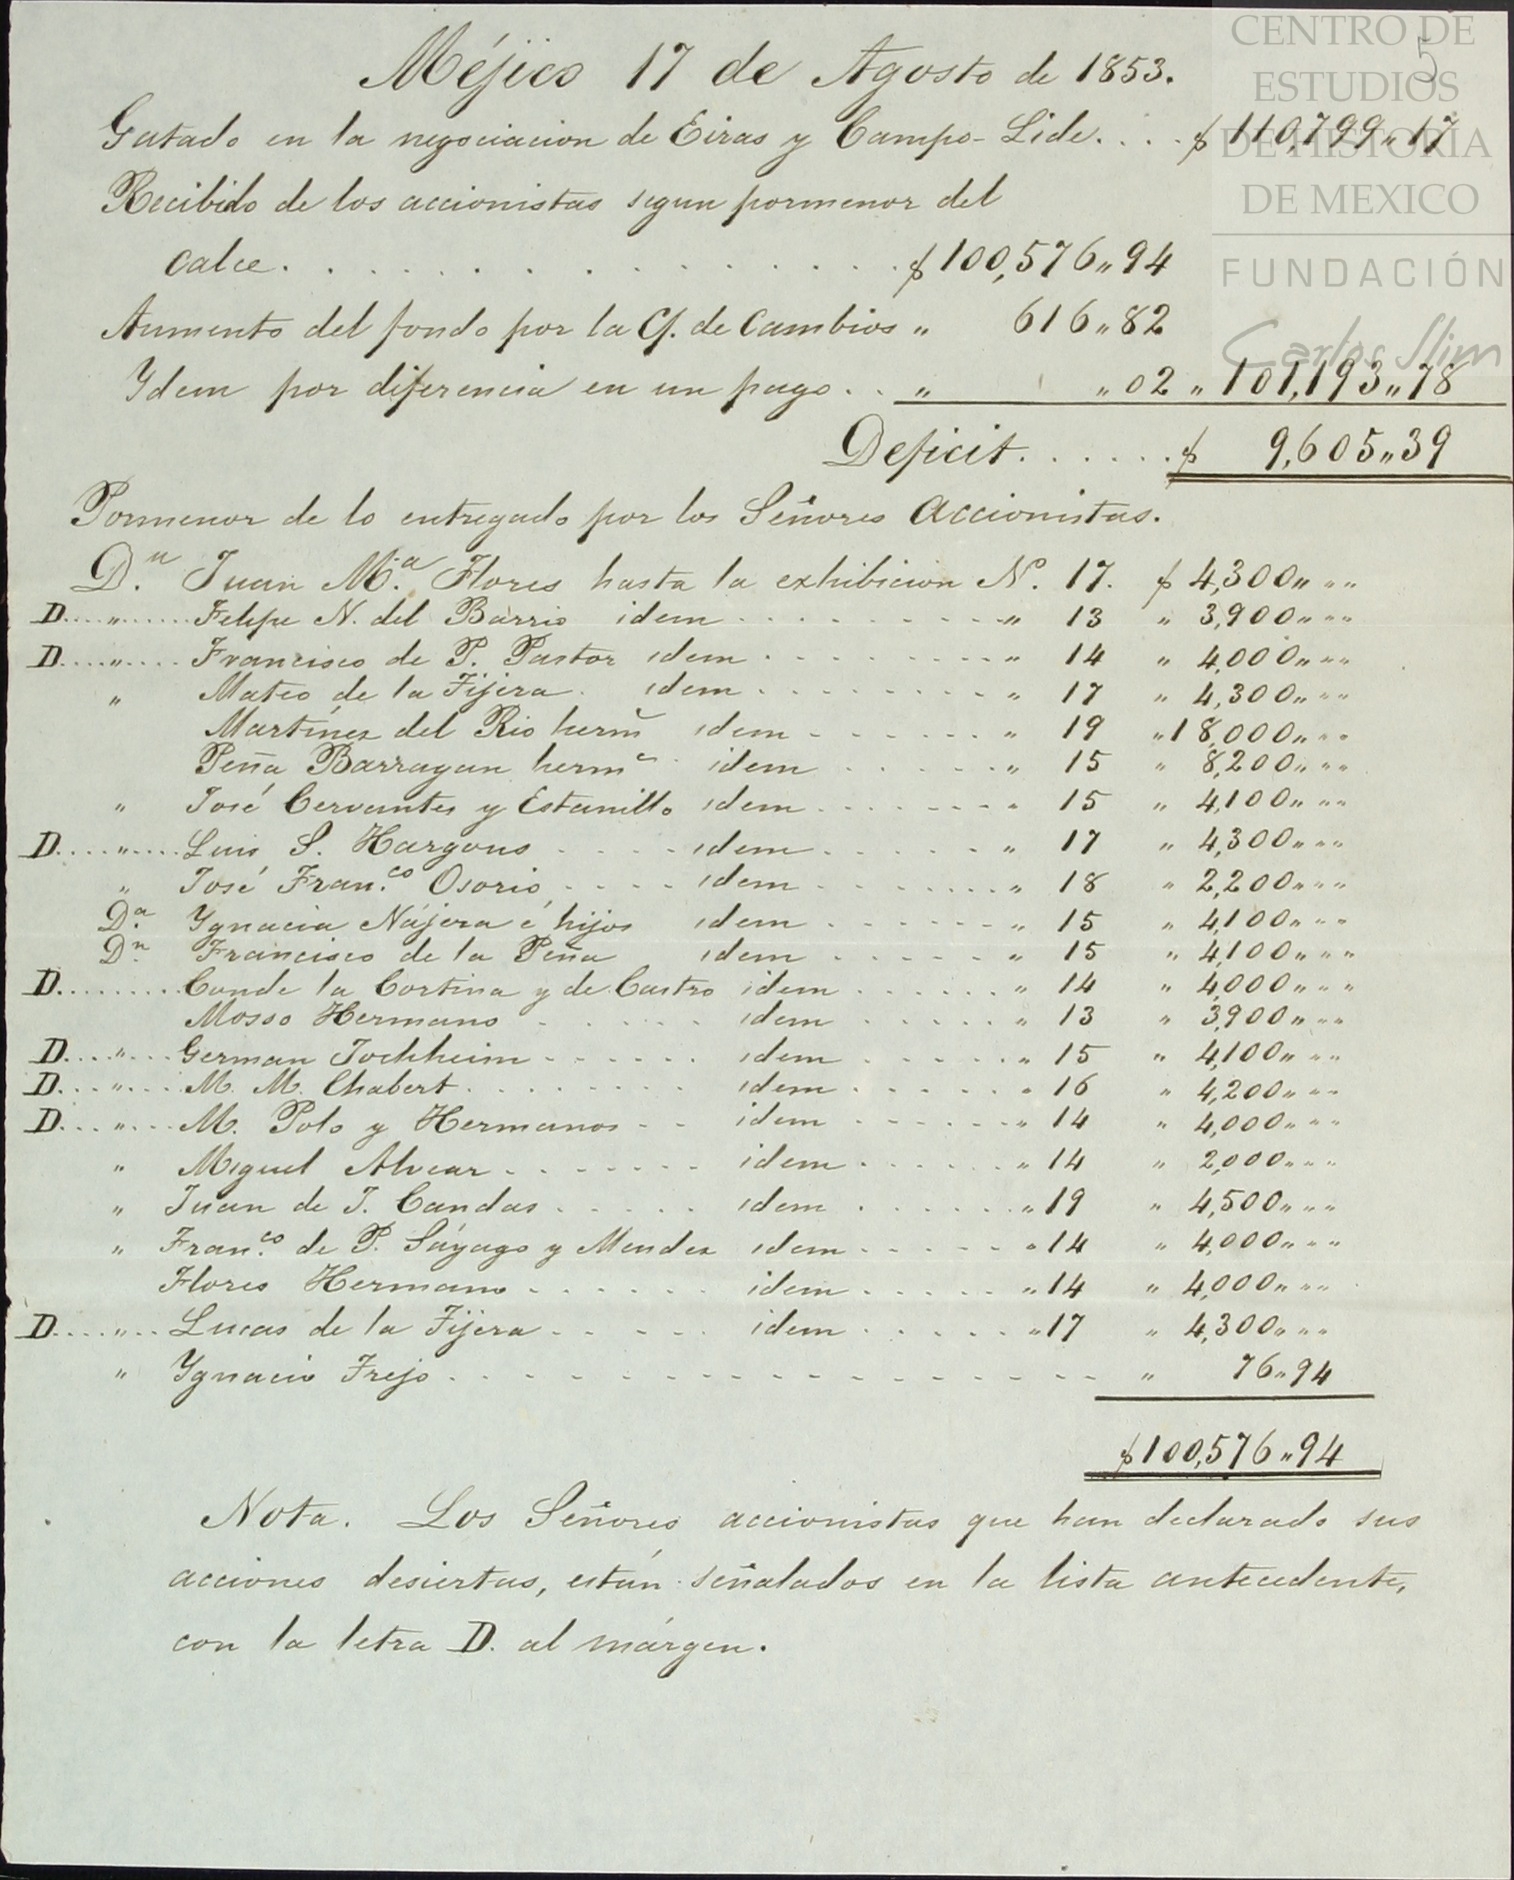 CENTRO DE
ESTUDIOS
DE HISTORIA
DE MEXICO
FUNDACIÓN
Carlos Slim
5
Méjico 17 de Agosto de 1853.
Gastado en la negociacion de Eiras y Campo-Lide. . . . $ 110,799,,17
Recibido de los accionistas segun pormenor del
calce. . . . . . . . . . . . $ 100,576,,94
Aumento del fondo por la C/. de Cambios ,, 616,,82
Ydem por diferencia en un pago . . ,, ,,02 ,, 101,193,,78
Deficit. . . . . . $ 9,605,,39
Pormenor de lo entregado por los Señores Accionistas.
D.n Juan M.a Flores hasta la exhibicion N.o 17. $ 4,300,, ,,
D....,,.... Felipe N. del Barrio idem . . . . . ,, 13 ,, 3,900,, ,,
D....,,.... Francisco de P. Pastor idem . . . . . ,, 14 ,, 4,000,, ,,
,, Mateo de la Tijera. idem . . . . . ,, 17 ,, 4,300,, ,,
Martínez del Rio herm.s idem . . . . . ,, 19 ,, 18,000,, ,,
Peña Barragan herm.s idem . . . . . ,, 15 ,, 8,200,, ,,
,, José Cervantes y Estanillo idem . . . . . ,, 15 ,, 4,100,, ,,
D....,,.... Luis S. Hargous . . . . idem . . . . . ,, 17 ,, 4,300,, ,,
,, José Fran.co Osorio . . . . idem . . . . . ,, 18 ,, 2,200,, ,,
D.a Ygnacia Nájera é hijos idem . . . . . ,, 15 ,, 4,100,, ,,
D.n Francisco de la Peña idem . . . . . ,, 15 ,, 4,100,, ,,
D......... Conde la Cortina y de Castro idem . . . . . ,, 14 ,, 4,000,, ,,
Mosso Hermano . . . . . idem . . . . . ,, 13 ,, 3,900,, ,,
D....,,.... German Jochheim . . . . . idem . . . . . ,, 15 ,, 4,100,, ,,
D....,,.... M. M. Chabert . . . . . idem . . . . . ,, 16 ,, 4,200,, ,,
D....,,.... M. Polo y Hermanos . . idem . . . . . ,, 14 ,, 4,000,, ,,
,, Miguel Alvear . . . . . idem . . . . . ,, 14 ,, 2,000,, ,,
,, Juan de J. Candas . . . . . idem . . . . . ,, 19 ,, 4,500,, ,,
,, Fran.co de P. Sáyago y Mendez idem . . . . . ,, 14 ,, 4,000,, ,,
Flores Hermano . . . . . idem . . . . . ,, 14 ,, 4,000,, ,,
D....,,.... Lucas de la Tijera . . . . . idem . . . . . ,, 17 ,, 4,300,, ,,
,, Ygnacio Trejo . . . . . . . . . . . ,, 76,,94
$ 100,576,,94
Nota. Los Señores accionistas que han declarado sus
acciones desiertas, están señalados en la lista antecedente,
con la letra D. al márgen.